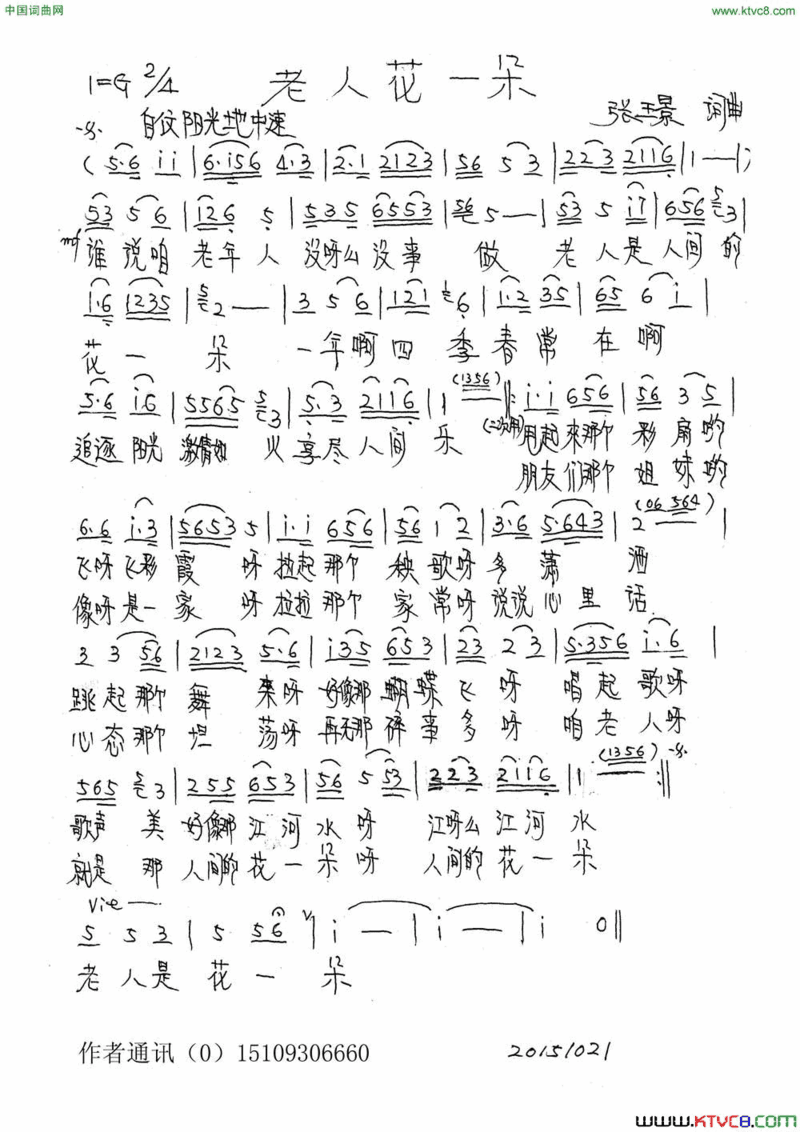 中国词曲网
www.ktvc8.com
1=G 2/4 老人花一朵
张玉景 词曲
自由 阳光地 中速
(5·6 i i | 6·i56 4·3 | 2·1 2123 | 56 5 3 | 223 2116 | 1 — | i
53 5 6 | 126 5 | 535 6553 | 5 — | 53 5 i7 | 656 3 |
mf 谁说咱 老年人 没呀么没事 做 老人是人间的
1·6 1235 | 2 — | 3 5 6 | 121 6 | 1·2 35 | 65 6 i |
花一 朵 一年啊四 季春常 在啊
5·6 i·6 | 5565 3 | 5·3 2116 | 1 (1356) :| i·i 656 | 56 3 5 |
追逐阳光 激情如 火享尽人间 乐 (二次用) 甩起来那个 彩扇哟
朋友们那个 姐妹哟
6·6 i·3 | 5653 5 | i·i 656 | 56 1 2 | 3·6 5·643 | 2 — (06 564) |
飞呀飞彩霞 呀拉起那个 秧歌呀多 潇 洒
像呀是一家 呀拉拉那个 家常呀说说心里 话
3 3 56 | 2123 5·6 | i35 653 | 23 2 3 | 5·356 i·6 |
跳起那个舞 来呀 好像那 蝴蝶飞呀 唱起歌呀
心态那个坦 荡呀 再无那 碎事多呀 咱老人呀
565 3 | 255 653 | 56 5 53 | 223 2116 | 1 — (1356) :||
歌声 美 好像那江河水呀 江呀么江河水
就是 那 人间的花一朵呀 人间的花一朵
5 5 3 | 5 56 | i — | i — | i 0 ||
老人是 花一 朵
作者通讯（0）15109306660 20151021
www.KTVC8.com